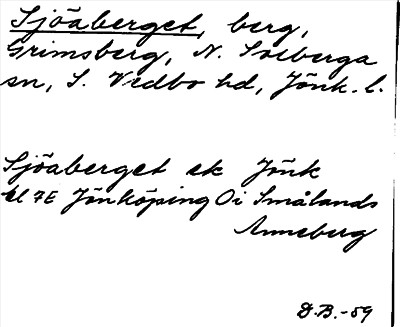 Sjöaberget, berg,
Grimsberg, N. Solberga
sn, S. Vedbo hd, Jönk. l.
Sjöaberget ek Jönk
bl 7E Jönköping O i Smålands
Anneberg
D.B.-59